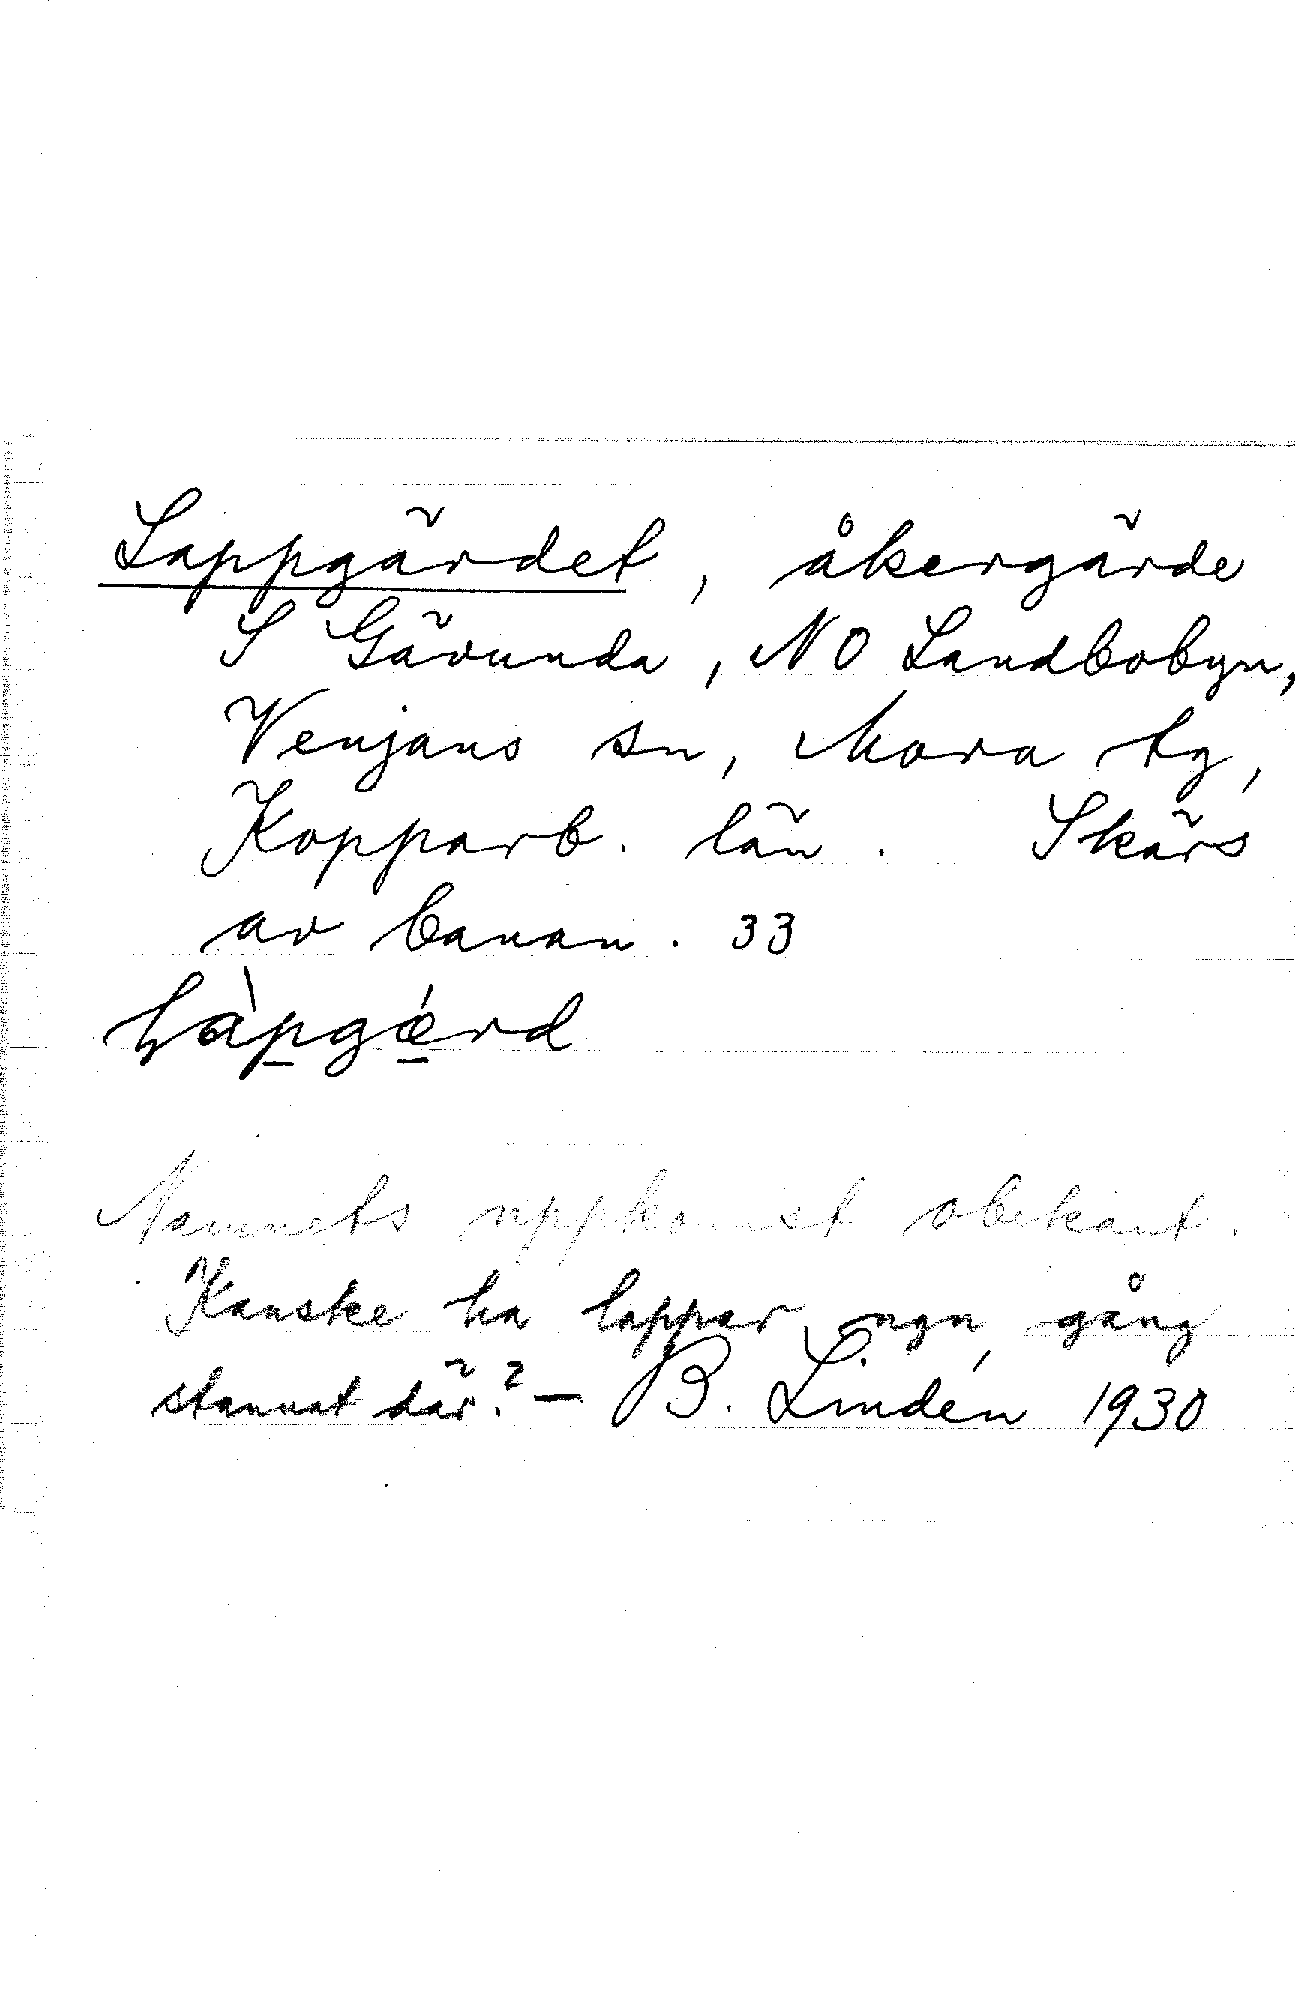 Lappgärdet, åkergärde
S Gävunda, NO Landbobyn,
Venjans sn, Mora tg,
Kopparb. län. Skärs
av banan. 33
làpgǽrd
Namnets uppkomst obekant.
Kanske ha lappar ngn gång
stannat där? — B. Lindén 1930